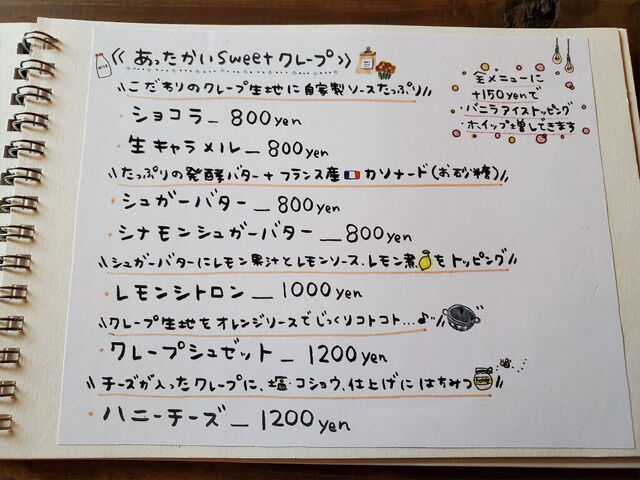 《 あったかいsweetクレープ》
MILK
こだわりのクレープ生地に自家製ソースたっぷり
・ショコラ — 800yen
・生キャラメル — 800yen
全メニューに
+150yenで
・バニラアイストッピング
・ホイップ増しできます
たっぷりの発酵バター+フランス産🇫🇷カソナード(お砂糖)
・シュガーバター — 800yen
・シナモンシュガーバター — 800yen
シュガーバターにレモン果汁とレモンソース、レモン煮🍋をトッピング
・レモンシトロン — 1000yen
クレープ生地をオレンジソースでじっくりコトコト...♪
・クレープシュゼット — 1200yen
チーズが入ったクレープに、塩・コショウ、仕上げにはちみつ
・ハニーチーズ — 1200yen